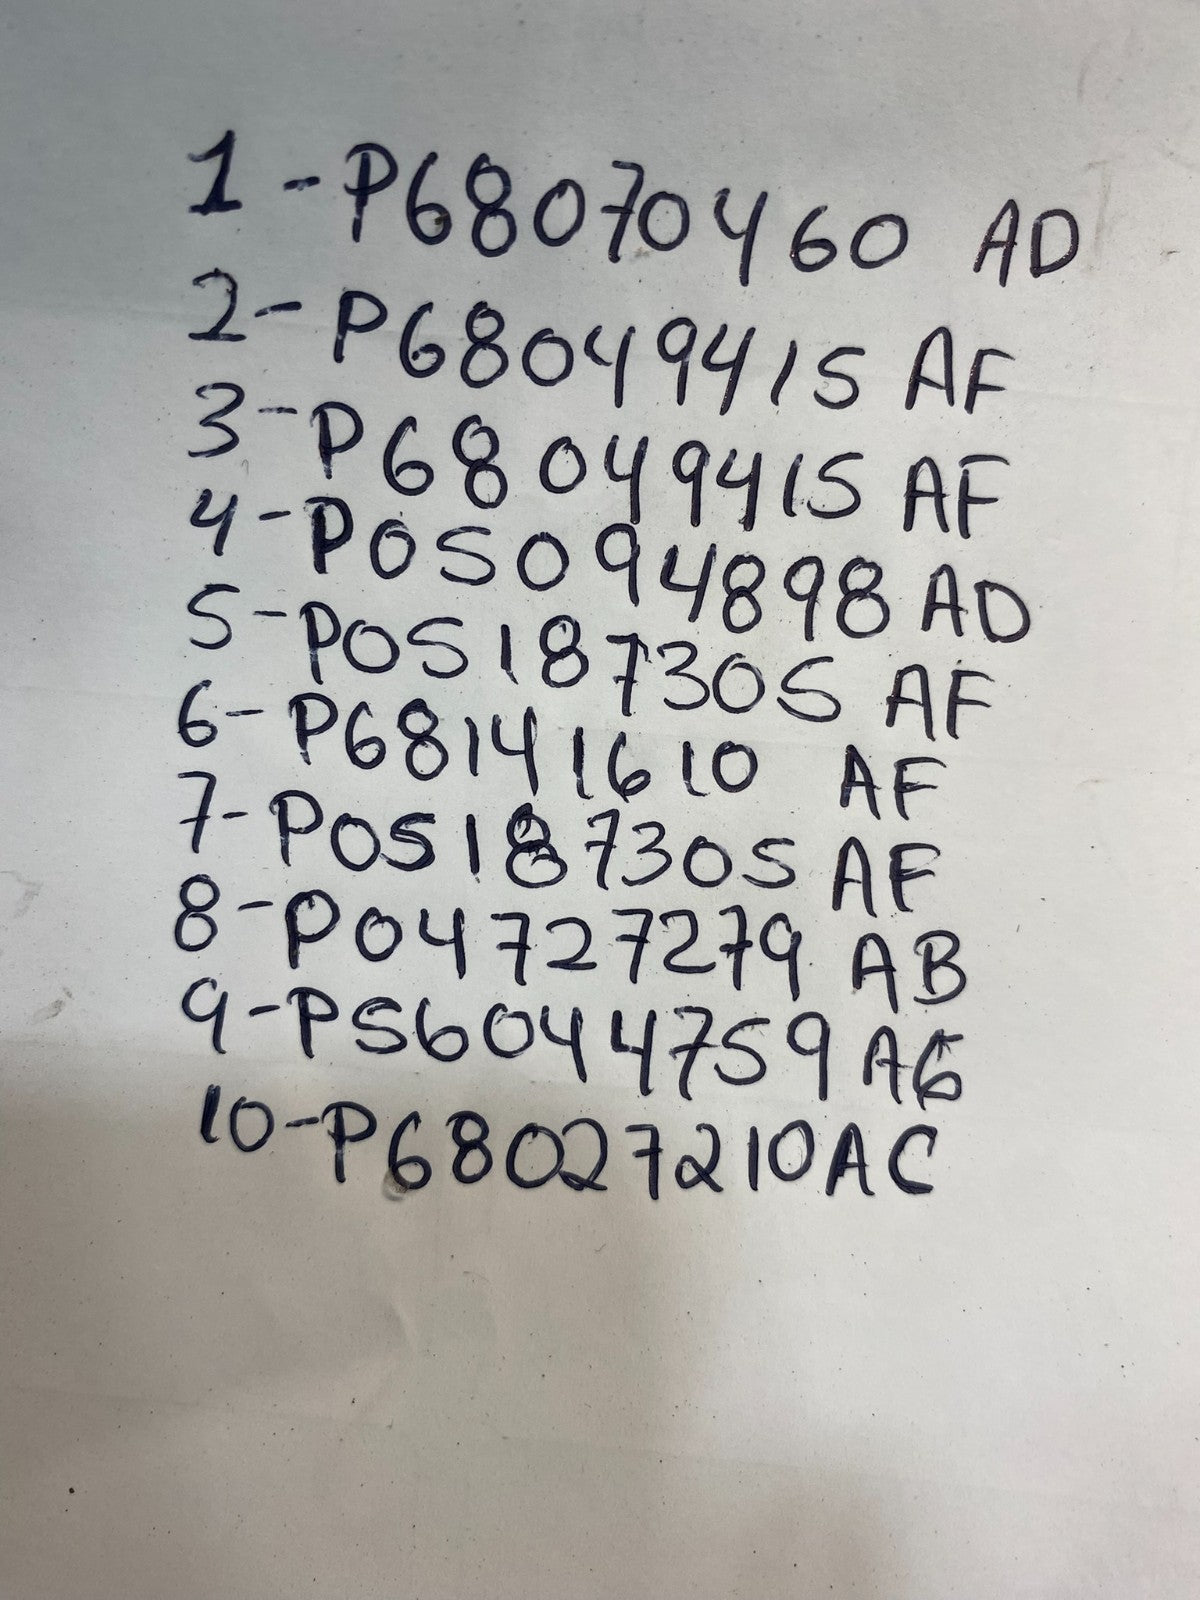 1 - P68070460 AD
2 - P68049415 AF
3 - P68049415 AF
4 - P05094898 AD
5 - P05187305 AF
6 - P68141610 AF
7 - P05187305 AF
8 - P04727279 AB
9 - P56044759 AG
10 - P68027210AC